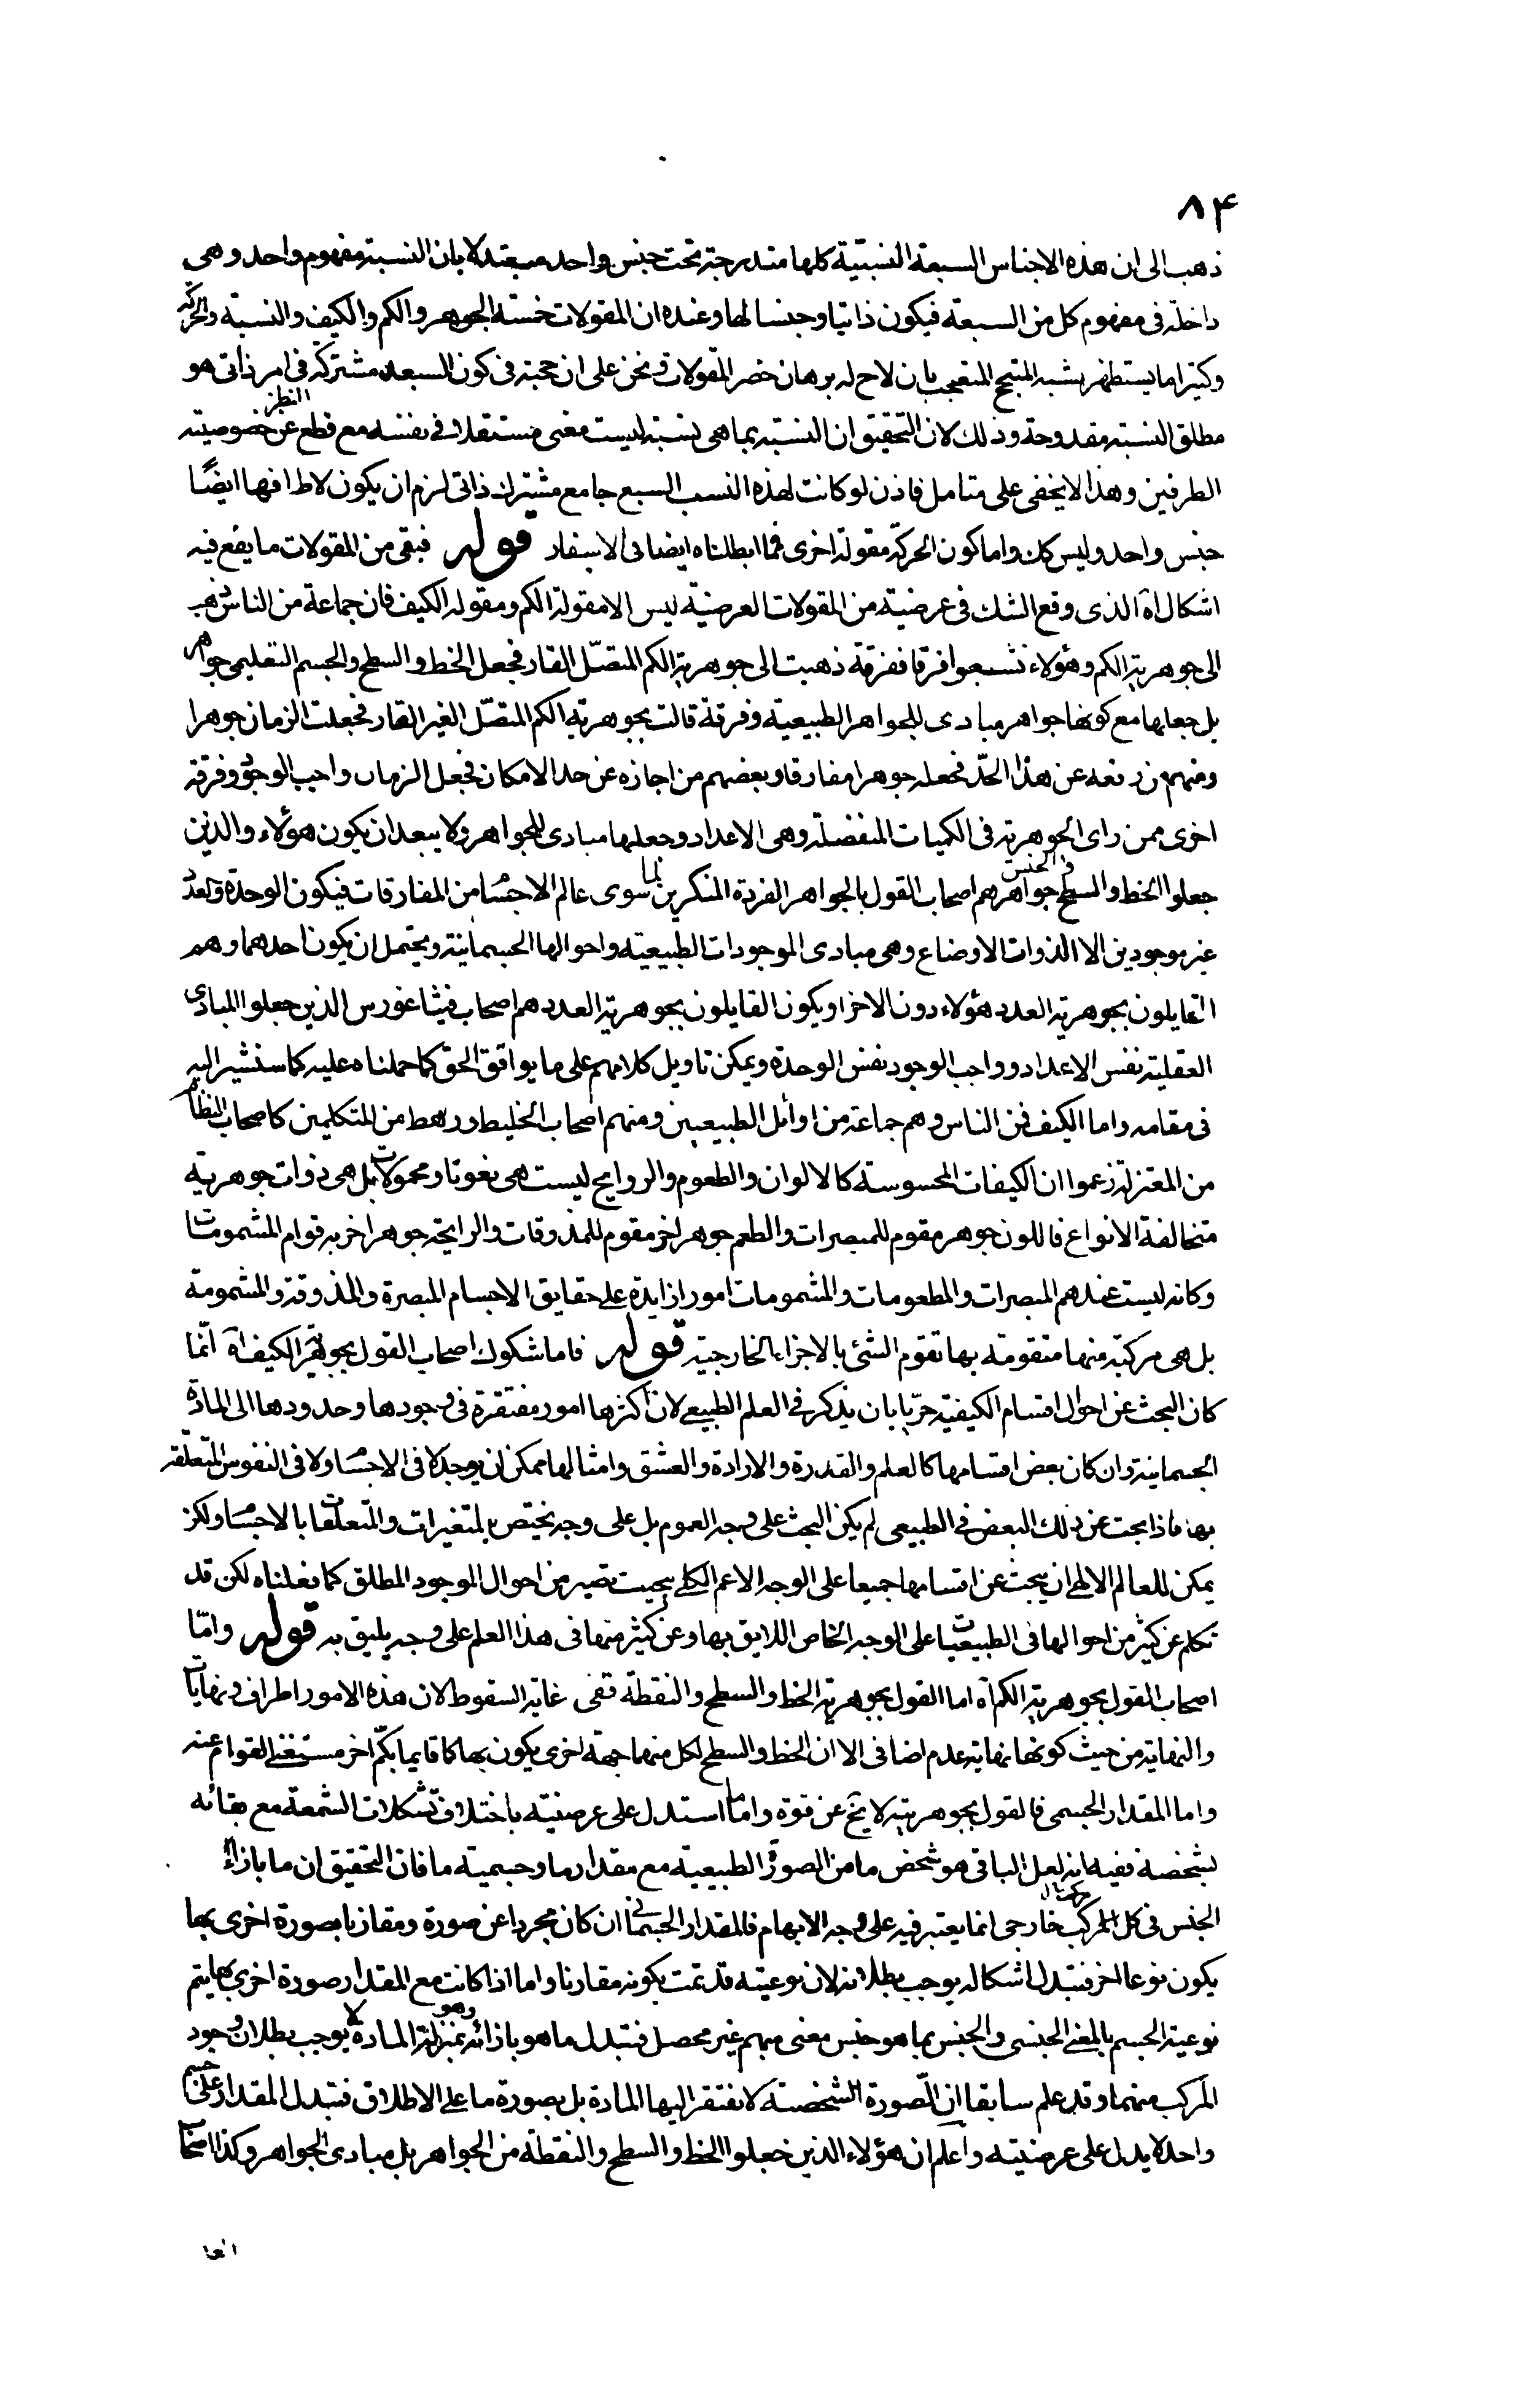 ۸۴
ذهب الى ان هذه الاجناس السبعة النسبيّة كلها مندرجة تحت جنس واحد مستدلا بان النسبة مفهوم واحد وهى
داخلة فى مفهوم كل من السبعة فيكون ذاتيا وجنسا لها وعنده ان المقولات خمسة الجوهر والكم والكيف والنسبة والحركة
وكثيرا ما يستظهر بشبه المتبجح المتعجب بان لاح له برهان حصر المقولات ونحن على ان حجته فى كون السبعة مشتركة فى امر ذاتى هو
مطلق النسبة مقدوحة وذلك لان التحقيق ان النسبة بما هى نسبة ليست معنى مستقلا فى نفسه مع قطع النظر عن خصوصية
الطرفين وهذا لا يخفى على متامل فاذن لو كانت لهذه النسب السبع جامع مشترك ذاتى لزم ان يكون لاطرافها ايضًا
جنس واحد وليس كك واما كون الحركة مقولة اخرى فمما ابطلناه ايضا فى الاسفار قوله فبقى من المقولات ما يقع فيه
اشكال اه الذى وقع الشك فى عرضيته من المقولات العرضية ليس الا مقولة الكم ومقولة الكيف فان جماعة من الناس ذهب
الى جوهرية الكم وهؤلاء تشعبوا فرقا ففرقة ذهبت الى جوهرية الكم المتصّل القار فجعل الخط والسطح والجسم التعليمى جواهر
بل جعلها مع كونها جواهر مبادى للجواهر الطبيعية وفرقة قالت بجوهرية الكم المتصّل الغير القار فجعلت الزمان جوهرا
ومنهم من رفعه عن هذا الحدّ فجعله جوهرا مفارقا وبعضهم من اجازه عن حد الامكان فجعل الزمان واجب الوجود وفرقة
اخرى ممن راى الجوهرية فى الكميات المنفصلة وهى الاعداد وجعلها مبادى للجواهر ولا يبعد ان يكون هؤلاء والذين
جعلوا الخط والسطح فى الجنس جواهر هم اصحاب القول بالجواهر الفردة المنكرين لما سوى عالم الاجسام من المفارقات فيكون الوحدة والعدد
غير موجودين الا الذوات الاوضاع وهى مبادى الموجودات الطبيعية واحوالها الجسمانية ويحتمل ان يكون احدهما وهم
القايلون بجوهرية العدد هؤلاء دون الاخر او يكون القايلون بجوهرية العدد هم اصحاب فيثاغورس الذين جعلوا المبادى
العقلية نفس الاعداد وواجب الوجود نفس الوحدة ويمكن تاويل كلامهم على ما يوافق الحق كما حملناه عليه كما سنشير اليه
فى مقامه واما الكيف فمن الناس وهم جماعة من اوائل الطبيعيين ومنهم اصحاب الخليط ورهط من المتكلمين كاصحاب النظام
من المعتزلة زعموا ان الكيفات المحسوسة كالالوان والطعوم والروايح ليست هى نعوتا ومحمولات بل هى ذوات جوهرية
متخالفة الانواع فاللون جوهر مقوم للمبصرات والطعم جوهر اخر مقوم للمذوقات والرايحة جوهر اخر به قوام المشمومات
وكانه ليست عندهم المبصرات والمطعومات والمشمومات امورا زايدة على حقايق الاجسام المبصرة والمذوقة والمشمومة
بل هى مركبة منها متقومة بها تقوم الشئ بالاجزاء الخارجية قوله فاما شكوك اصحاب القول بجوهرية الكيف اه انّما
كان البحث عن احوال اقسام الكيفية حريّا بان يذكر فى العلم الطبيعى لان اكثرها امور مفتقرة فى وجودها وحدودها الى المادة
الجسمانية وان كان بعض اقسامها كالعلم والقدرة والارادة والعشق وامثالها ممكن ان يوجد لا فى الاجسام ولا فى النفوس المتعلقة
بها فاذا بحث عن ذلك البعض فى الطبيعى لم يكن البحث على وجه العموم بل على وجه يختص بالمتغيرات والمتعلقات بالاجسام ولكن
يمكن للعالم الالهى ان يبحث عن اقسامها جميعا على الوجه الاعم الكلى بحيث تصير من احوال الموجود المطلق كما فعلناه لكن قد
تكلم عن كثير من احوالها فى الطبيعيات على الوجه الخاص اللايق بها وعن كثير منها فى هذا العلم على وجه يليق به قوله وامّا
اصحاب القول بجوهرية الكم اه اما القول بجوهرية الخط والسطح والنقطة ففى غاية السقوط لان هذه الامور اطراف ونهايات
والنهاية من حيث كونها نهاية عدم اضافى الا ان الخط والسطح لكل منهما جهة اخرى يكون بها كما قايما بكمّ اخر مستغنى القوام عنه
واما المقدار الجسمى فالقول بجوهريته لا يخ عن قوة واما ما استدل على عرضيته باختلاف تشكلات الشمعة مع بقائه
بشخصه ففيه انه لعل الباقى هو شخص ما من الصورة الطبيعية مع مقدار ما وجسمية ما فان التحقيق ان ما بازاء
الجنس فى كل مركب خارجى انما يعتبر فيه على وجه الابهام فالمقدار الجسمانى ان كان مجردا عن صورة ومقارنا بصورة اخرى بها
يكون نوعا اخر فتبدل اشكاله يوجب بطلانه لان نوعيته قد تمت بكونه مقارنا واما اذا كانت مع المقدار صورة اخرى بها يتم
نوعية الجسم بالمعنى الجنسى والجنس بما هو جنس معنى مبهم غير محصل فتبدل ما هو بازائه وهو بمنزلة المادة لا يوجب بطلان وجود
المركب منهما وقد علم سابقا ان الصورة الشخصية لا تفتقر اليها المادة بل بصورة ما على الاطلاق فتبدل المقدار على جسم
واحد لا يدل على عرضيته واعلم ان هؤلاء الذين جعلوا الخط والسطح والنقطة من الجواهر بل مبادى الجواهر وكذا اصحاب